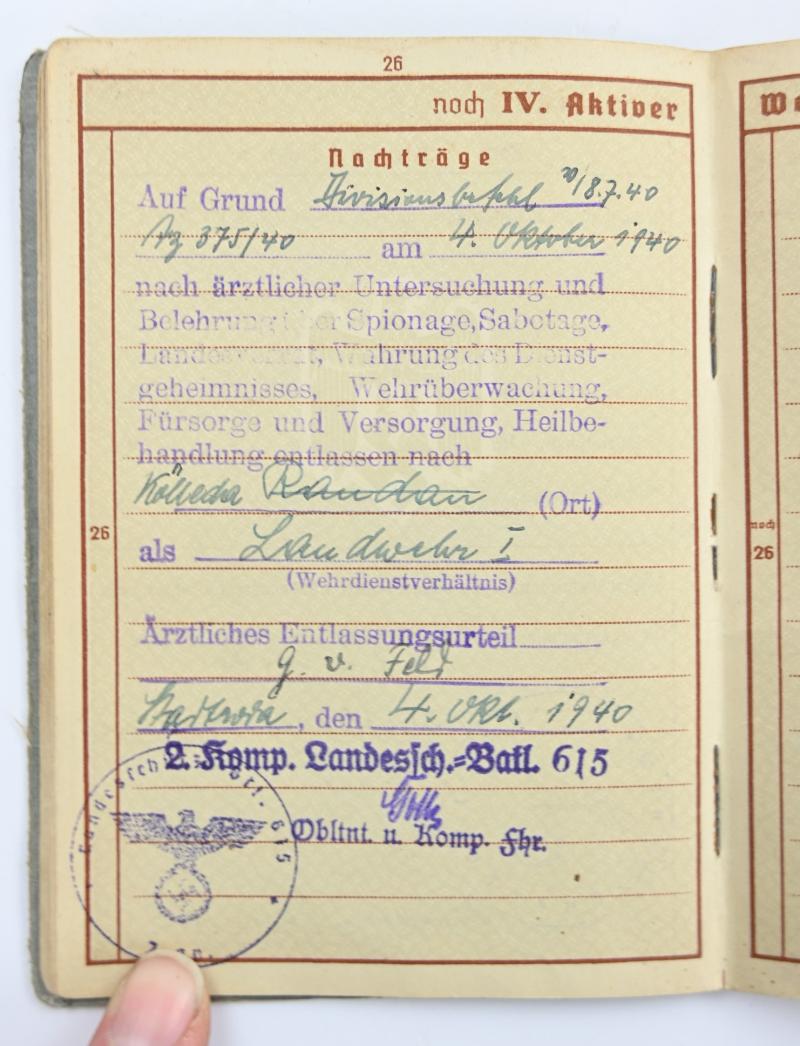 26
noch IV. Aktiver
Nachträge
Auf Grund Divisionsbefehl v/8.7.40
Az 375/40 am 4. Oktober 1940
nach ärztlicher Untersuchung und
Belehrung über Spionage, Sabotage,
Landesverrat, Wahrung des Dienst-
geheimnisses, Wehrüberwachung,
Fürsorge und Versorgung, Heilbe-
handlung entlassen nach
Kölleda Randau (Ort)
26
als Landwehr I
(Wehrdienstverhältnis)
Ärztliches Entlassungsurteil
g. v. Feld
Stadtroda, den 4. Okt. 1940
2. Komp. Landessch.=Batl. 615
Obltnt. u. Komp. Fhr.
Landessch 615
noch
26